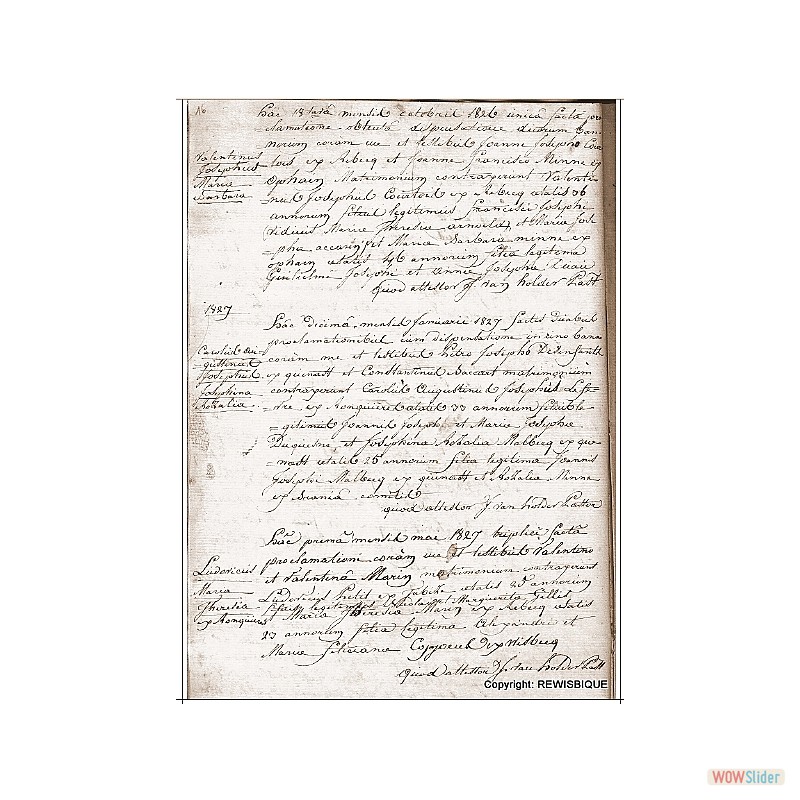 No
Hac 18 mensis octobris 1826 unica facta pro
clamatione obtenta dispensatione duorum ban
norum coram me et testibus Joanne Josepho Cour
tois ex Rebecq et Joanne Francisco Minne ex
Ophain Matrimonium contraxerunt Valenti
nus Josephus Courtois ex Rebecq ætatis 36
annorum filius legitimus Francisci Josephi
viduus Mariæ Theresiæ et Maria Jose
=pha et Maria Barbara minne ex
ophain ætatis 46 annorum filia legitima
Guilielmi Josephi et Annæ Josephæ
quod attestor J. van holder Past
Valentinus
Josephus
Maria
Barbara
1827
Hac Decimâ mensis Januarii 1827 factis Duabus
proclamationibus cum dispensatione in uno banno
coram me et testibus Petro Josepho Desenfants
ex quenast et Constantinus Baccart matrimonium
contraxerunt Carolus Augustinus Josephus Lefe-
-vre ex Ronquieres ætatis 33 annorum filius le-
=gitimus Joannis Joseph et Mariæ Josephæ
Duquesne et Josephina Rosalia Malbecq ex que
=nast ætatis 25 annorum filia legitima Joannis
Josephi Malbecq ex quenast et Rosaliæ Minne
ex
quod attestor J. van holder Pastor
Carolus au-
gustinus
Josephus
Josephina
Rosalia.
Hac primâ mensis mai 1827 triplici factâ
proclamationi coram me et testibus Valentino
et Valentina Marin matrimonium contraxerunt
Ludovicus Petit ex ætatis 25 annorum
filius legitimus et Margueritæ Gilles
et Maria Theresia Marin ex Rebecq ætatis
23 annorum filia legitima Alexandri et
Mariæ ex Wisbecq
quod attestor J. van holder Past
Ludovicus
Maria
Theresia
ex Ronquieres
Copyright: REWISBIQUE
WOWSlider